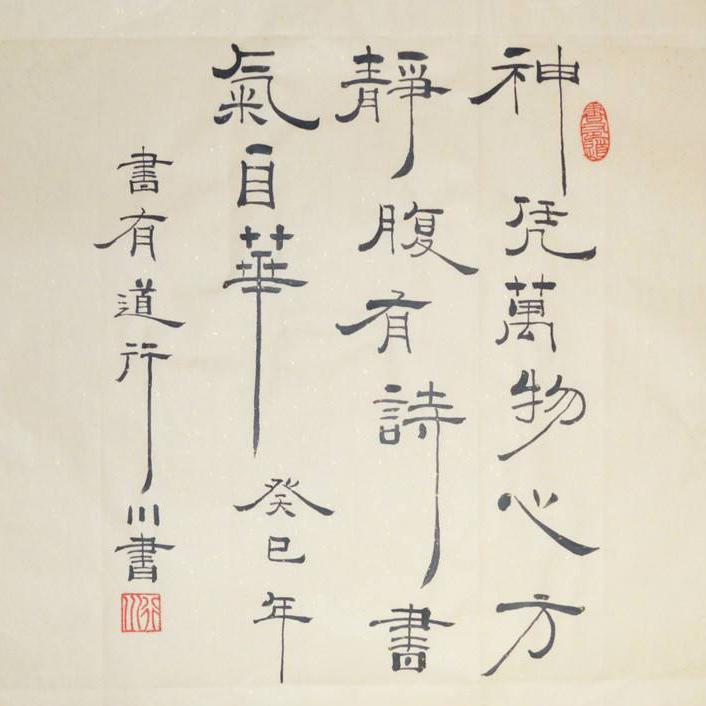 神凭萬物心方
靜腹有詩書
氣自華
癸巳年
書有道行川書